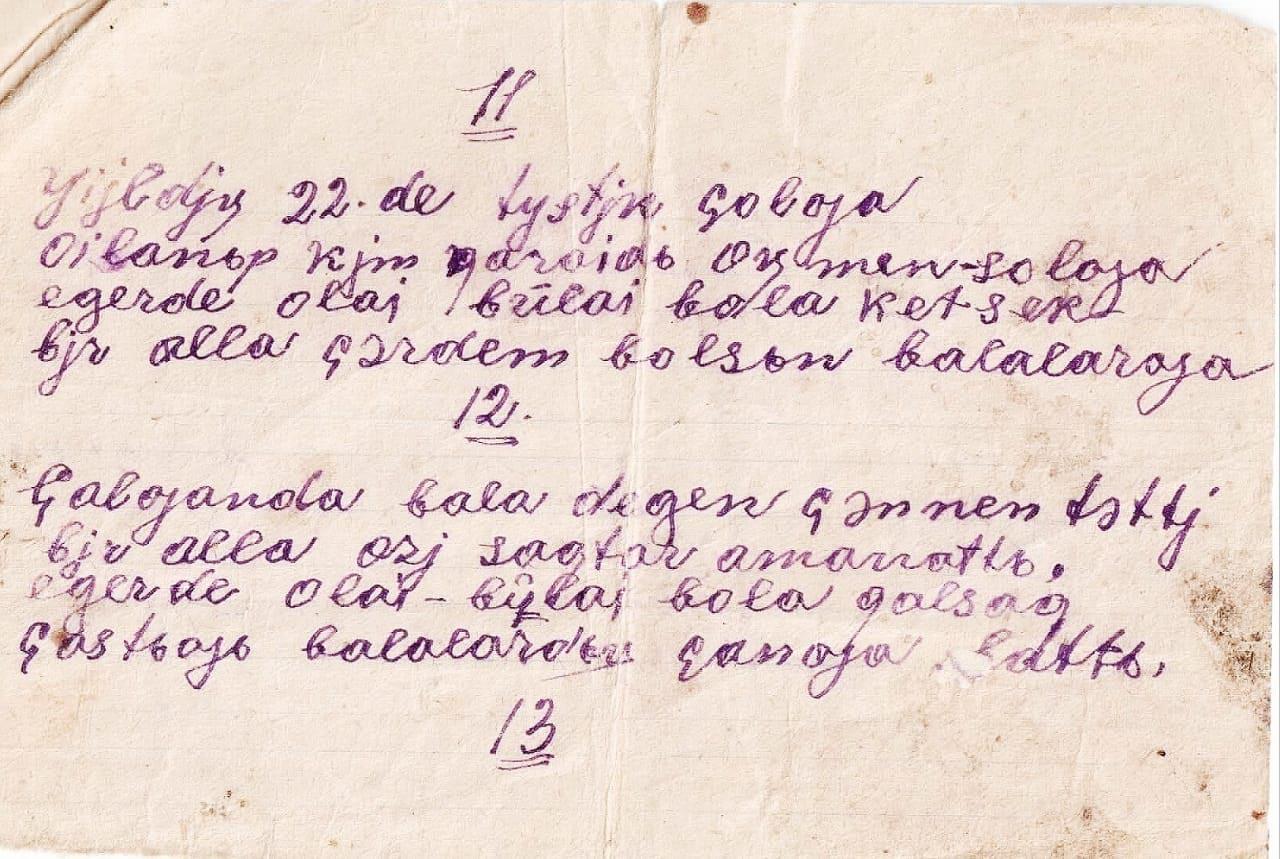 11
Yijldjꞑ 22.de tystjk çoloƣa
oilanьp kjm qaraidь oꞑ men-soloƣa
egerde olai būlai bola ketsek
bjr alla çərdem bolsьn balalaroƣa
12.
Çaloƣanda bala degen çənnen təttj
bjr alla ozj saqtar amanattь.
egerde olai-būlai bola qalsaq
çastьƣь balalardьꞑ çanoƣa battь.
13